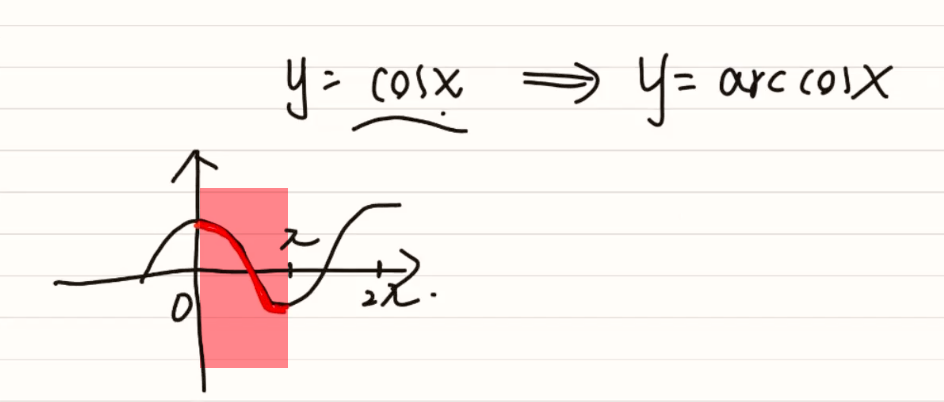 y = cosx ⟹ y = arccosx
π
0
2π